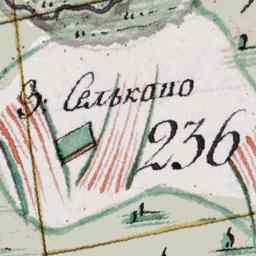 З. Селькопо
236